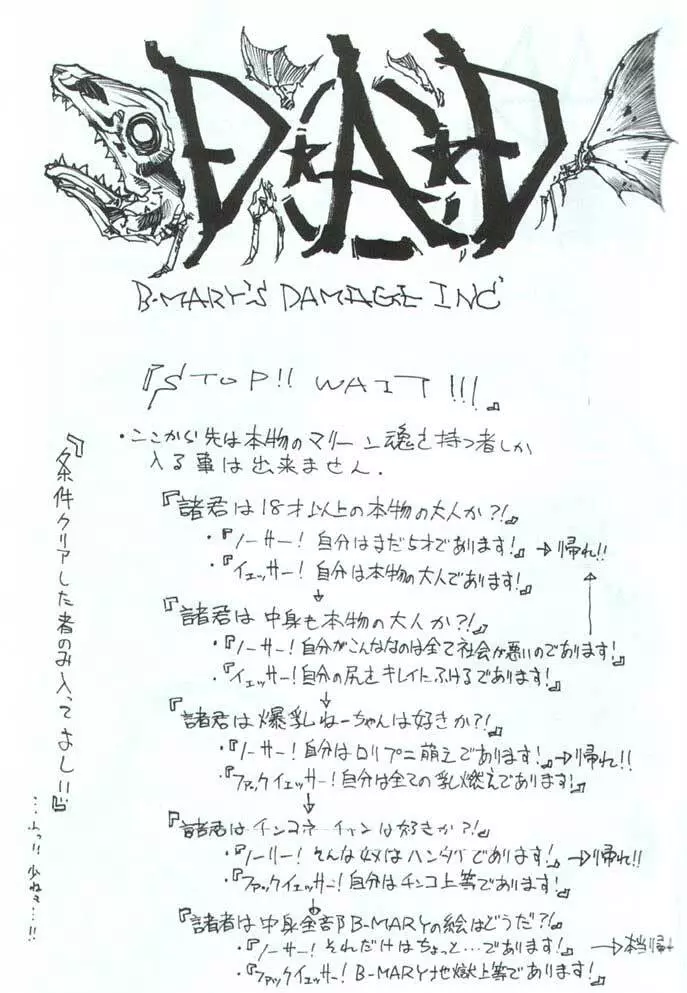 D★A★D
B-MARY'S DAMAGE INC
『STOP!! WAIT!!!』
・ここから先は本物のマリーン魂を持つ者しか
入る事は出来ません.
『諸君は18才以上の本物の大人か?!』
・『ノーサー! 自分はまだ5才であります!』→帰れ!!
・『イェッサー! 自分は本物の大人であります!』
↓
『諸君は中身も本物の大人か?!』
・『ノーサー! 自分がこんななのは全て社会が悪いのであります!』
・『イェッサー! 自分の尻をキレイにふけるであります!』
↓
『諸君は爆乳ねーちゃんは好きか?!』
・『ノーサー! 自分はロリプニ萌えであります!』→帰れ!!
・『ファックイェッサー! 自分は全ての乳燃えであります!』
↓
『諸君はチンコネーチャンは好きか?!』
・『ノーサー! そんな奴はハンタイであります!』→帰れ!!
・『ファックイェッサー! 自分はチンコ上等であります!』
↓
『諸君は中身全部B-MARYの絵はどうだ?!』
・『ノーサー! それだけはちょっと…であります!』→本当帰れ
・『ファックイェッサー! B-MARY地獄上等であります!』
『条件クリアした者のみ入ってよし!!』